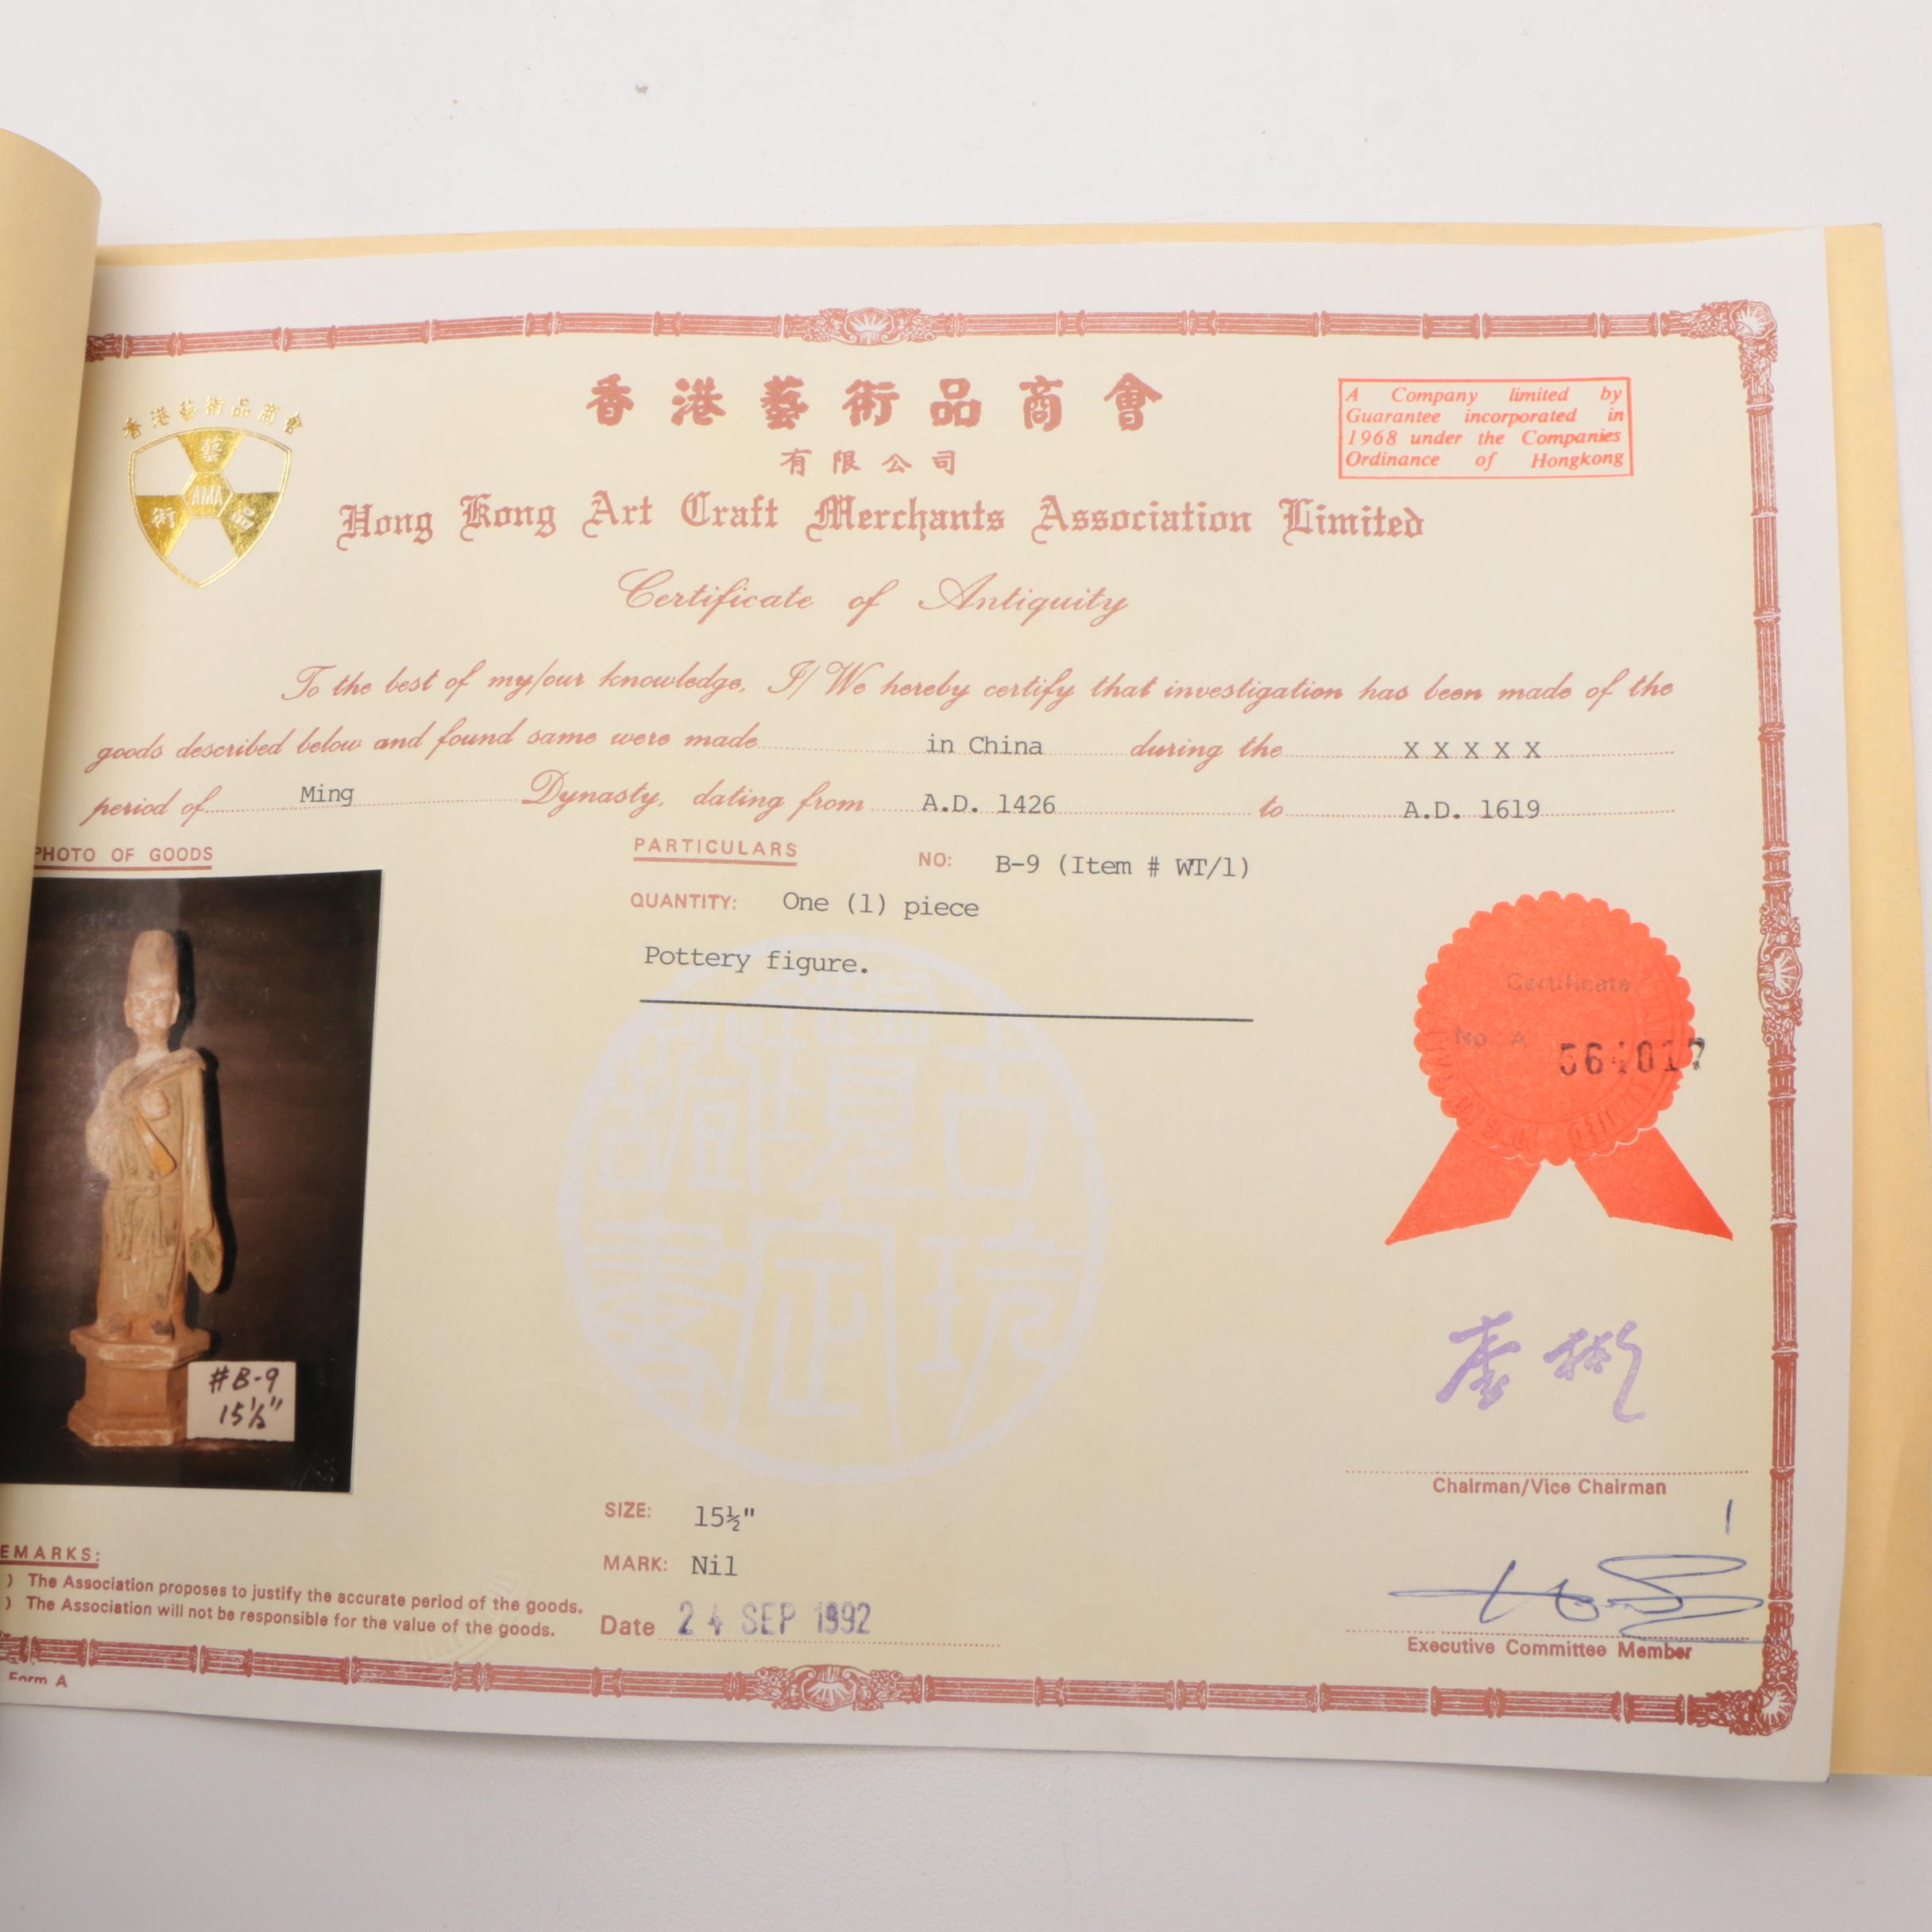 香港藝術品商會
藝
AMA
術 品
香港藝術品商會
有限公司
A Company limited by
Guarantee incorporated in
1968 under the Companies
Ordinance of Hongkong
Hong Kong Art Craft Merchants Association Limited
Certificate of Antiquity
To the best of my/our knowledge, I/We hereby certify that investigation has been made of the
goods described below and found same were made in China during the X X X X X
period of Ming Dynasty, dating from A.D. 1426 to A.D. 1619
PHOTO OF GOODS
PARTICULARS NO: B-9 (Item # WT/1)
QUANTITY: One (1) piece
Pottery figure.
Certificate
No. A
#B-9
15½"
SIZE: 15½"
MARK: Nil
Date 24 SEP 1992
Chairman/Vice Chairman
Executive Committee Member
EMARKS:
) The Association proposes to justify the accurate period of the goods.
) The Association will not be responsible for the value of the goods.
Form A